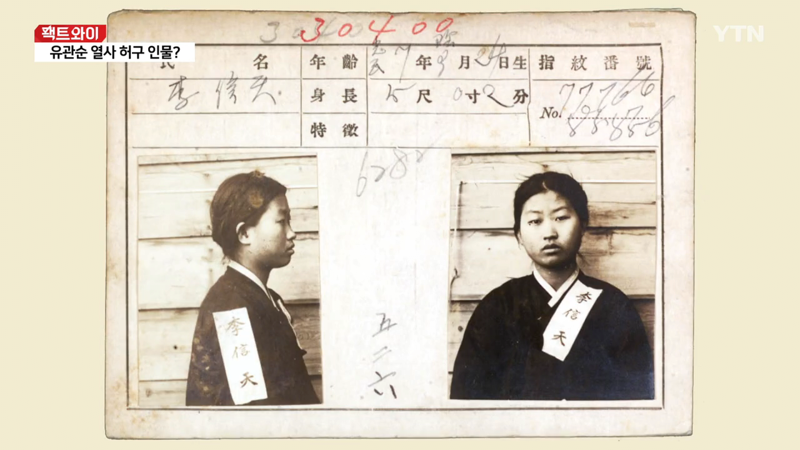 팩트와이
유관순 열사 허구 인물?
YTN
30400
氏 名 年 齡 年 月 日生 指紋番號
李信天 身 長 五尺 寸 分 No.
特 徵
6282
李信天
李信天
五二六